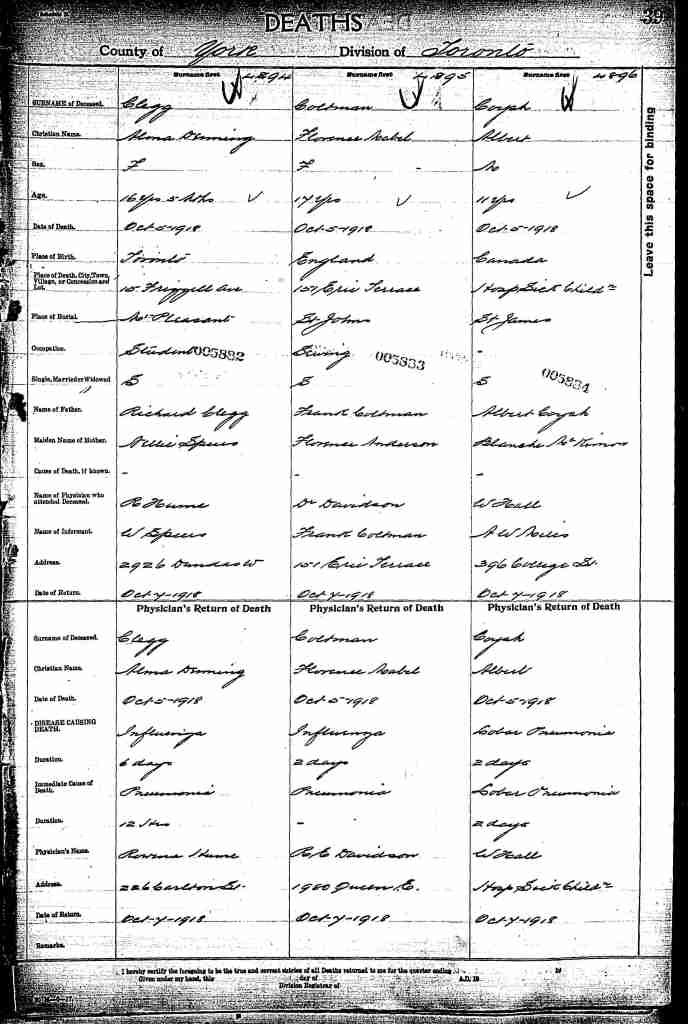 DEATHS
39
County of York Division of Toronto
Surname first 4894 Surname first 4895 Surname first 4896
SURNAME of Deceased. Clegg Coltman Coysh
Christian Name. Alma Denning Florence Mabel Albert
Sex. F F M
Age. 16 yrs 5 Mths 17 yrs 11 yrs
Date of Death. Oct-5-1918 Oct-5-1918 Oct-5-1918
Place of Birth. Toronto England Canada
Place of Death, City, Town, Village, or Concession and Lot. 15 Ave 151 Erie Terrace Hosp Sick Childn
Place of Burial. Mt Pleasant St Johns St James
Occupation. Student 005832 Sewing 005833 -
Single, Married or Widowed S S S 005834
Name of Father. Richard Clegg Frank Coltman Albert Coysh
Maiden Name of Mother. Nellie Speers Florence Anderson Blanche
Cause of Death, if known. - - -
Name of Physician who attended Deceased. R Hume Dr Davidson W Hall
Name of Informant. W Speers Frank Coltman A W Miles
Address. 2926 Dundas W 151 Erie Terrace 396 College St.
Date of Return. Oct-7-1918 Oct-7-1918 Oct-7-1918
Physician's Return of Death Physician's Return of Death Physician's Return of Death
Surname of Deceased. Clegg Coltman Coysh
Christian Name. Alma Denning Florence Mabel Albert
Date of Death. Oct-5-1918 Oct-5-1918 Oct-5-1918
DISEASE CAUSING DEATH. Influenza Influenza Lobar Pneumonia
Duration. 6 days 2 days 2 days
Immediate Cause of Death. Pneumonia Pneumonia Lobar Pneumonia
Duration. 12 Hrs - 2 days
Physician's Name. Rowena Hume R E Davidson W Hall
Address. 226 Carlton St. 1980 Queen E. Hosp Sick Childn
Date of Return. Oct-7-1918 Oct-7-1918 Oct-7-1918
Remarks.
I hereby certify the foregoing to be the true and correct entries of all Deaths returned to me for the quarter ending 19
Given under my hand, this day of A.D. 19
Division Registrar of
Leave this space for binding